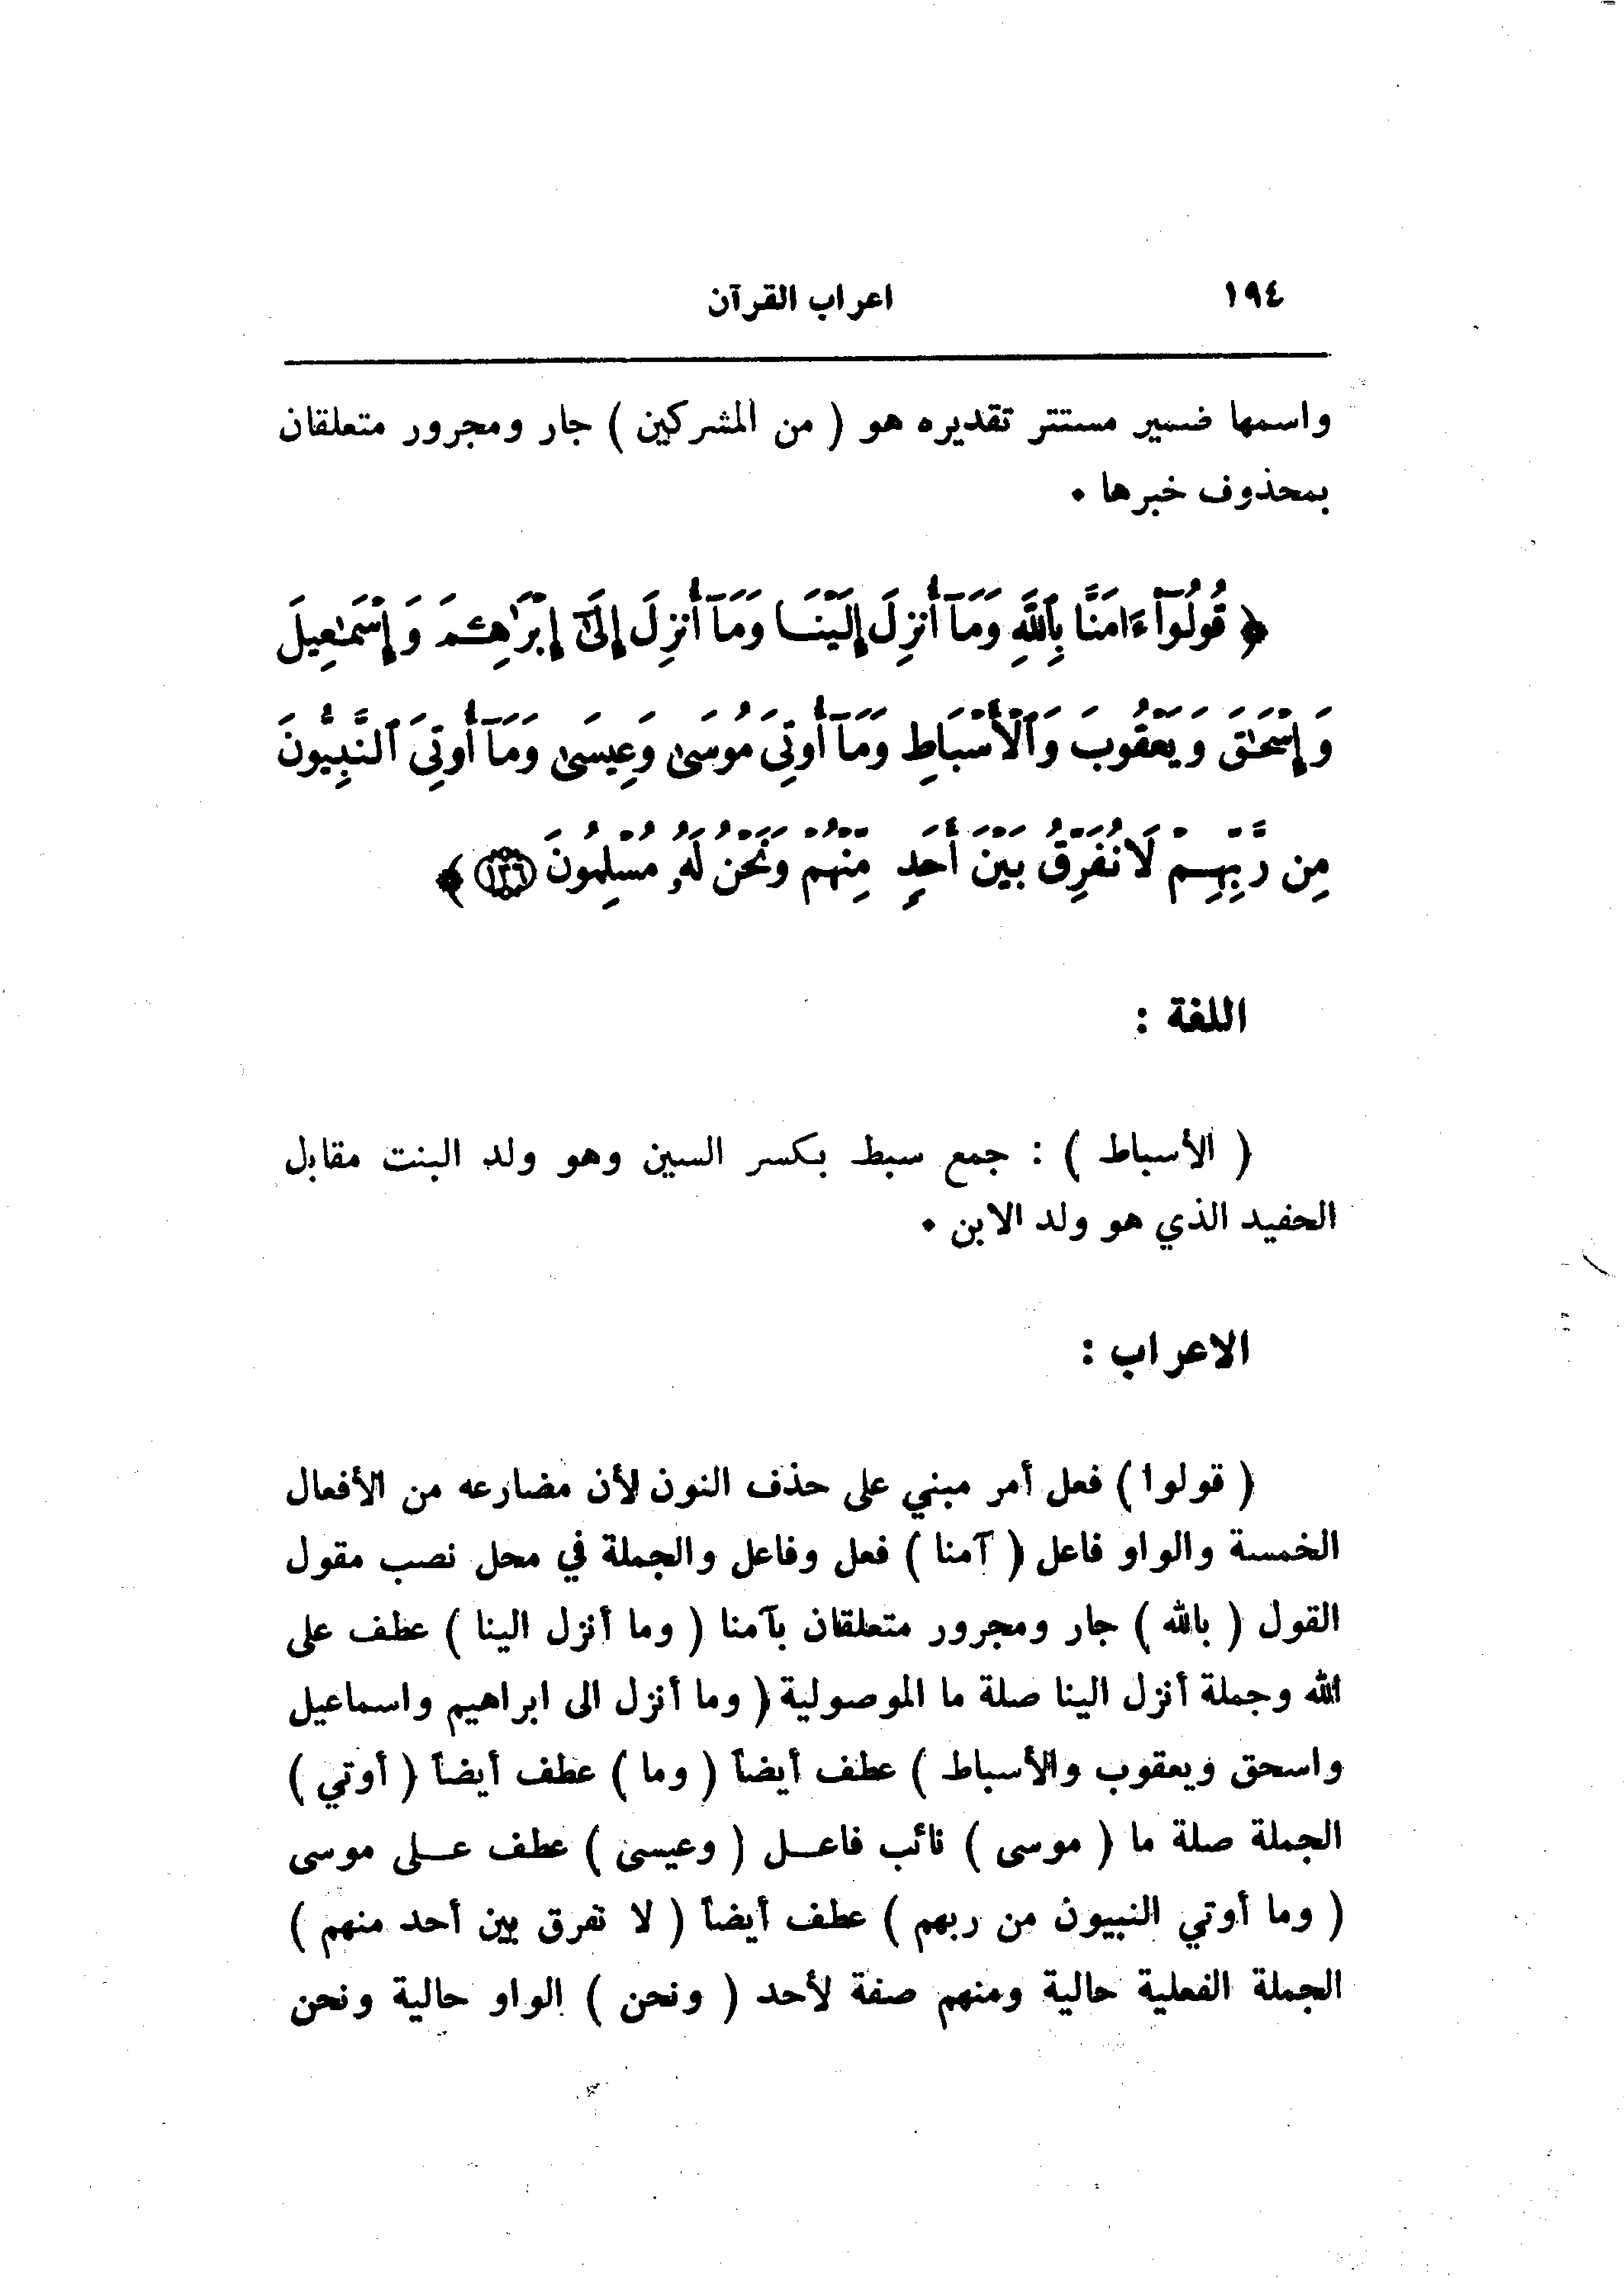 ١٩٤ اعراب القرآن
واسمها ضمير مستتر تقديره هو ( من المشركين ) جار ومجرور متعلقان
بمحذوف خبرها ٠
﴿ قُولُوٓا۟ ءَامَنَّا بِٱللَّهِ وَمَآ أُنزِلَ إِلَيْنَا وَمَآ أُنزِلَ إِلَىٰٓ إِبْرَٰهِـۧمَ وَإِسْمَٰعِيلَ
وَإِسْحَٰقَ وَيَعْقُوبَ وَٱلْأَسْبَاطِ وَمَآ أُوتِىَ مُوسَىٰ وَعِيسَىٰ وَمَآ أُوتِىَ ٱلنَّبِيُّونَ
مِن رَّبِّهِمْ لَا نُفَرِّقُ بَيْنَ أَحَدٍ مِّنْهُمْ وَنَحْنُ لَهُۥ مُسْلِمُونَ ١٣٦ ﴾
اللغة :
( الأسباط ) : جمع سبط بكسر السين وهو ولد البنت مقابل
الحفيد الذي هو ولد الابن ٠
الاعراب :
( قولوا ) فعل أمر مبني على حذف النون لأن مضارعه من الأفعال
الخمسة والواو فاعل ( آمنا ) فعل وفاعل والجملة في محل نصب مقول
القول ( بالله ) جار ومجرور متعلقان بآمنا ( وما أنزل الينا ) عطف على
الله وجملة أنزل الينا صلة ما الموصولية ( وما أنزل الى ابراهيم واسماعيل
واسحق ويعقوب والأسباط ) عطف أيضاً ( وما ) عطف أيضاً ( أوتي )
الجملة صلة ما ( موسى ) نائب فاعــل ( وعيسى ) عطف عــلى موسى
( وما أوتي النبيون من ربهم ) عطف أيضاً ( لا نفرق بين أحد منهم )
الجملة الفعلية حالية ومنهم صفة لأحد ( ونحن ) الواو حالية ونحن